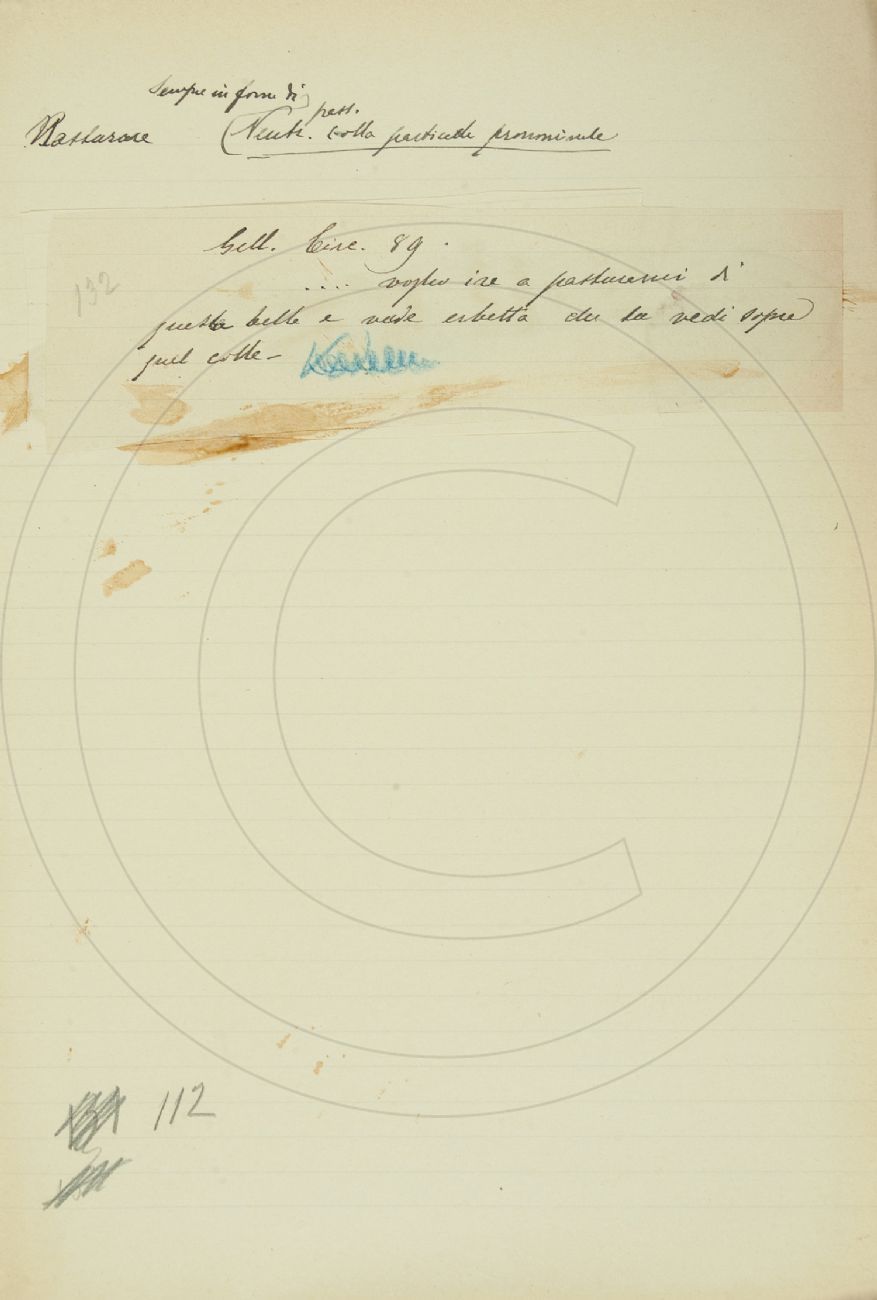 Sempre in forma di
pass.
Pasturare (Neutr. colla particella pronominale
Gell. Circ. 89.
132
.... voglio ire a pasturarmi di
questa bella e verde erbetta che tu vedi sopra
quel colle —
112